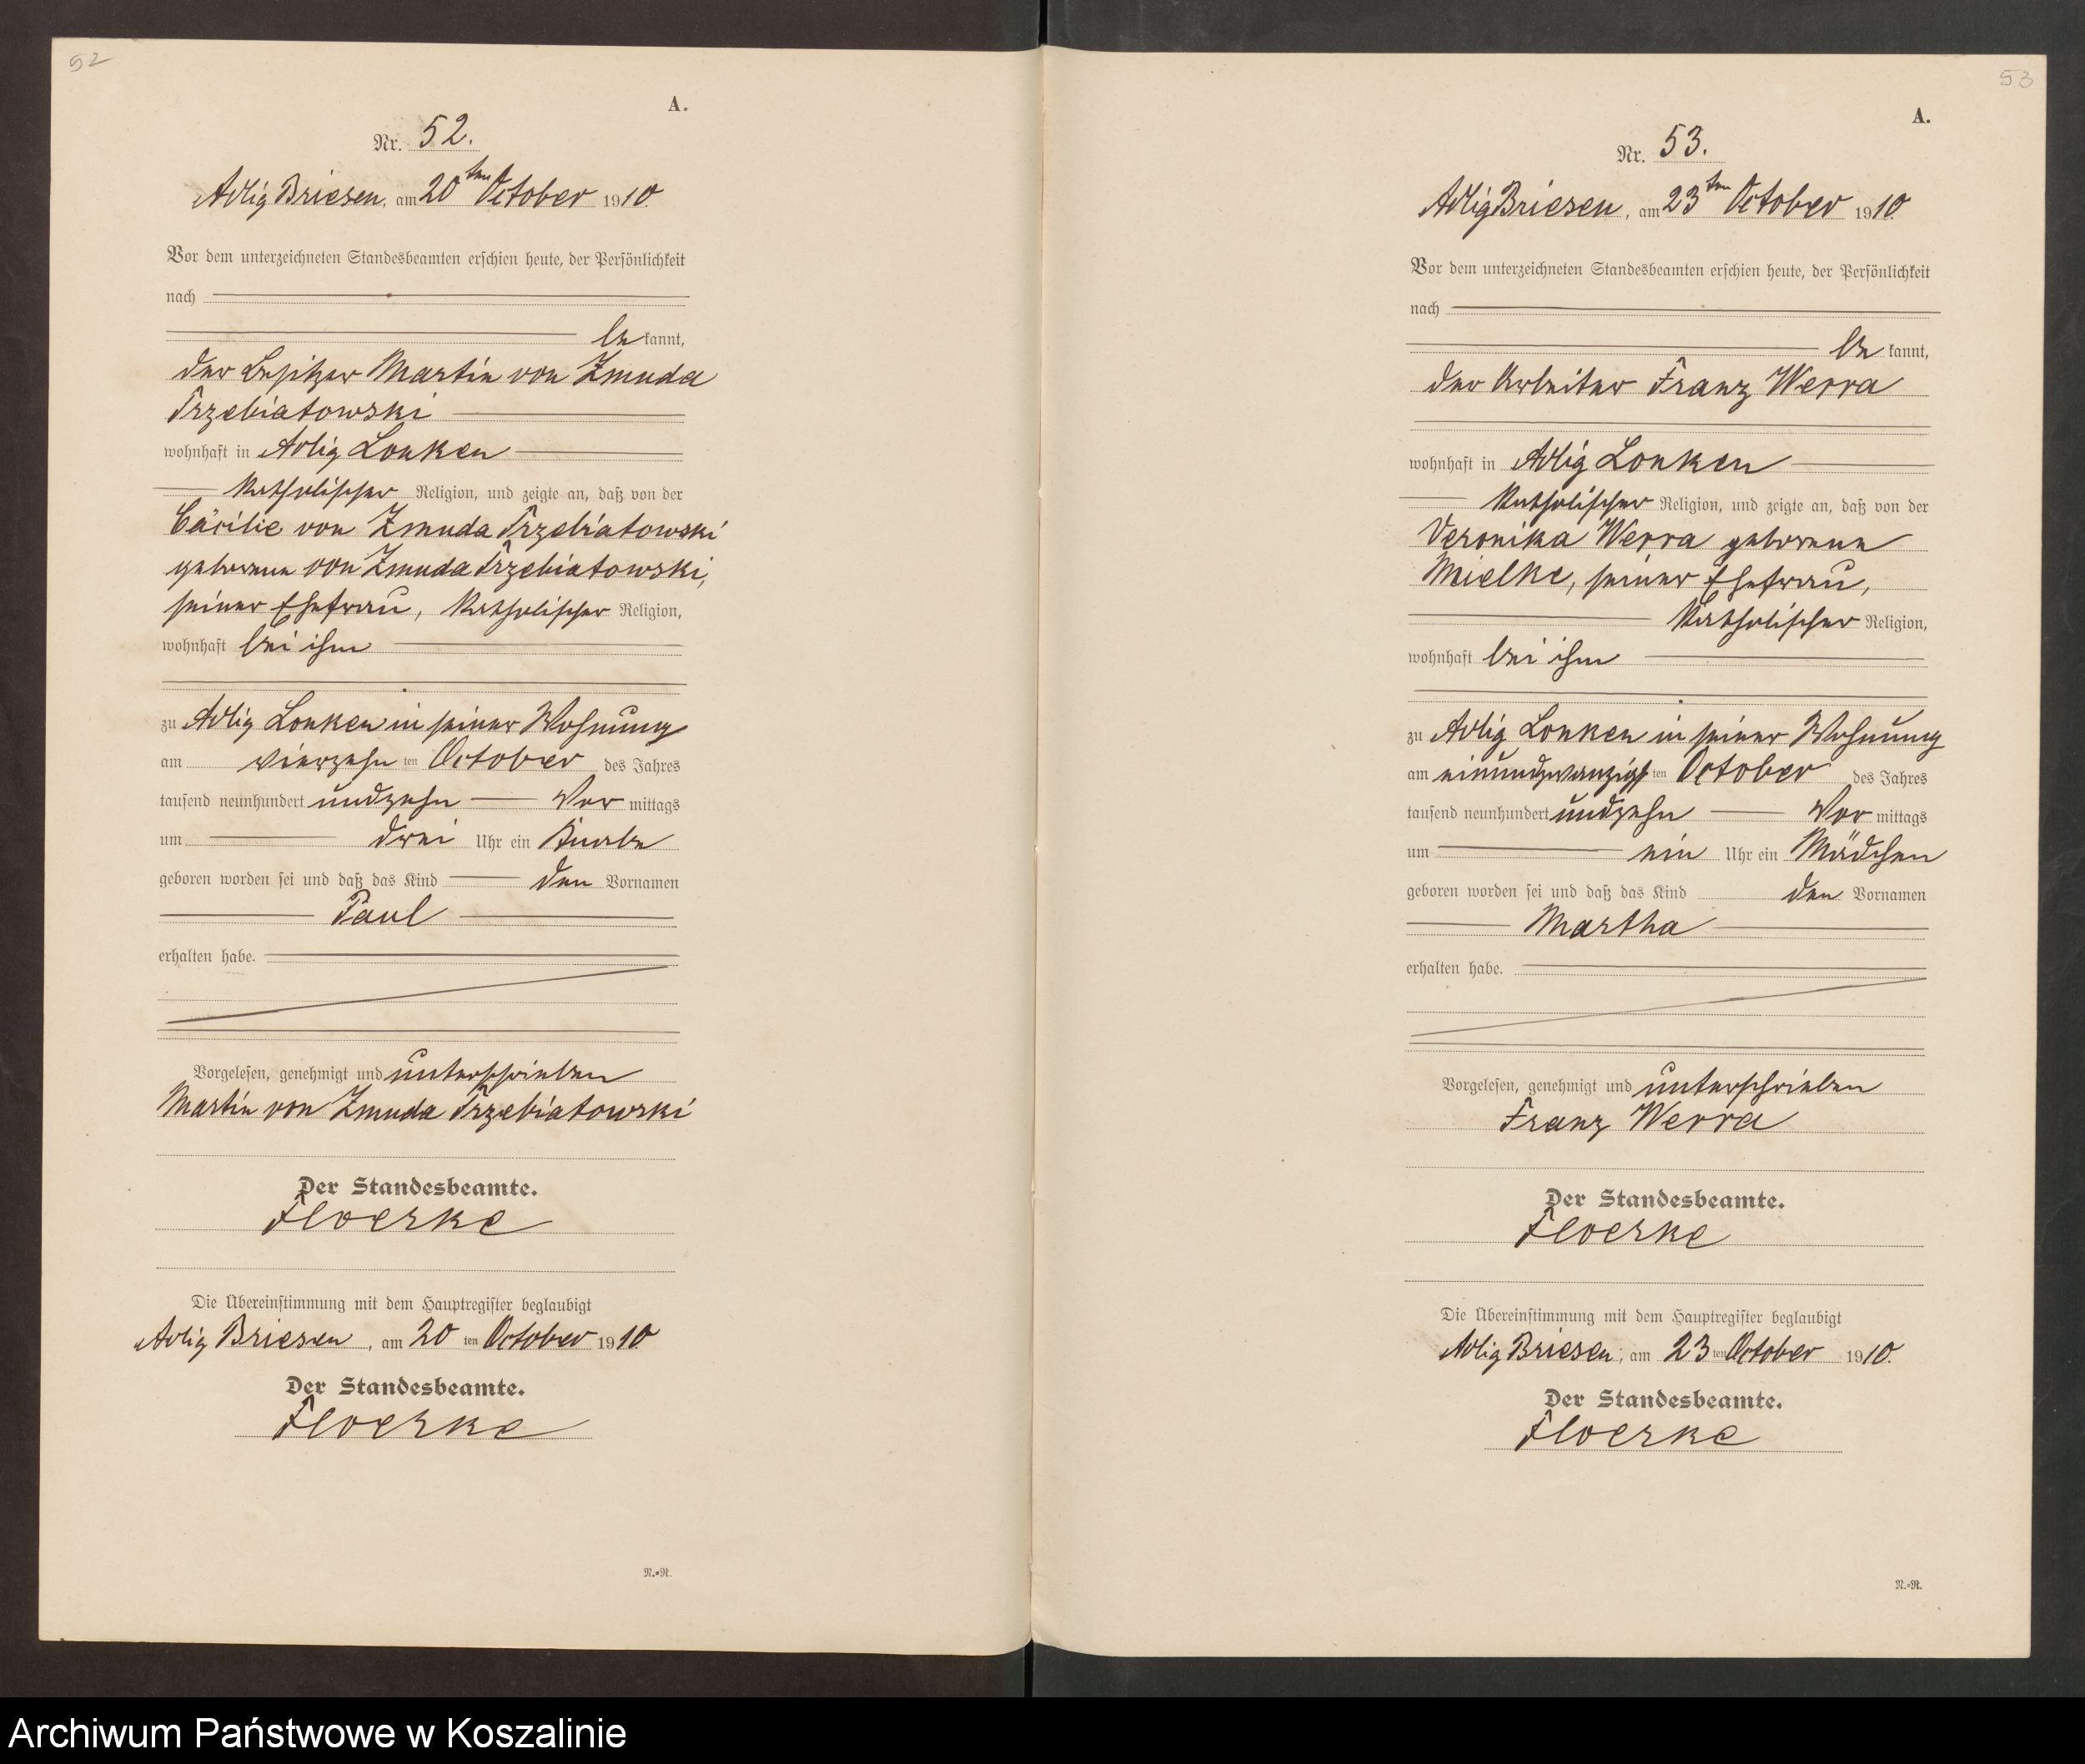 52
A.
Nr. 52.
Adlig Briesen, am 20ten October 1910.
Vor dem unterzeichneten Standesbeamten erschien heute, der Persönlichkeit
nach
be kannt,
der Besitzer Martin von Zmuda
Trzebiatowski
wohnhaft in Adlig Lonken
katholischer Religion, und zeigte an, daß von der
Cäcilie von Zmuda Trzebiatowski
geborenen von Zmuda Trzebiatowski,
seiner Ehefrau, katholischer Religion,
wohnhaft bei ihm
zu Adlig Lonken in seiner Wohnung
am vierzehn ten October des Jahres
tausend neunhundert undzehn Vor mittags
um drei Uhr ein Knabe
geboren worden sei und daß das Kind den Vornamen
Paul
erhalten habe.
Vorgelesen, genehmigt und unterschrieben
Martin von Zmuda Trzebiatowski
Der Standesbeamte.
Floerke
Die Übereinstimmung mit dem Hauptregister beglaubigt
Adlig Briesen, am 20 ten October 1910.
Der Standesbeamte.
Floerke
N.=R.
53
A.
Nr. 53.
Adlig Briesen, am 23ten October 1910.
Vor dem unterzeichneten Standesbeamten erschien heute, der Persönlichkeit
nach
be kannt,
der Arbeiter Franz Werra
wohnhaft in Adlig Lonken
katholischer Religion, und zeigte an, daß von der
Veronika Werra geborenen
Mielke, seiner Ehefrau,
katholischer Religion,
wohnhaft bei ihm
zu Adlig Lonken in seiner Wohnung
am einundzwanzigs ten October des Jahres
tausend neunhundert undzehn Vor mittags
um ein Uhr ein Mädchen
geboren worden sei und daß das Kind den Vornamen
Martha
erhalten habe.
Vorgelesen, genehmigt und unterschrieben
Franz Werra
Der Standesbeamte.
Floerke
Die Übereinstimmung mit dem Hauptregister beglaubigt
Adlig Briesen, am 23 ten October 1910.
Der Standesbeamte.
Floerke
N.=R.
Archiwum Państwowe w Koszalinie